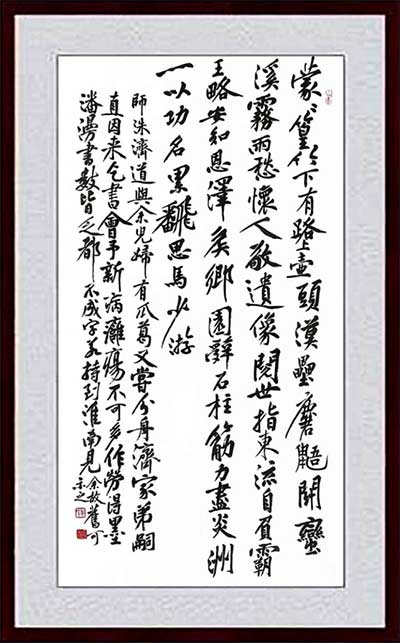 蒙〻篁竹下有路上壺頭漢壘麏鼯鬪蠻
溪霧雨愁懷人敬遺像閱世指東流自負霸
王略安知恩澤矦鄉園辭石柱筋力盡炎洲
一以功名累飜思馬少游
師洙濟道與余兒婦有瓜葛又嘗分舟濟家弟嗣
直因来乞書會予新病癰瘍不可多作勞得墨
瀋漫書數皆乏都不成字若持到淮南見余故舊可
示之